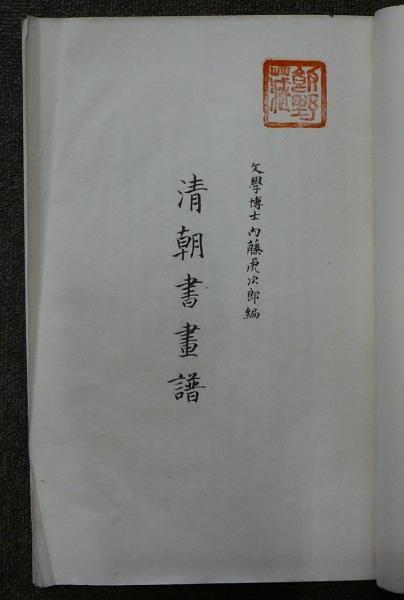 文學博士內藤虎次郎編
清朝書畫譜